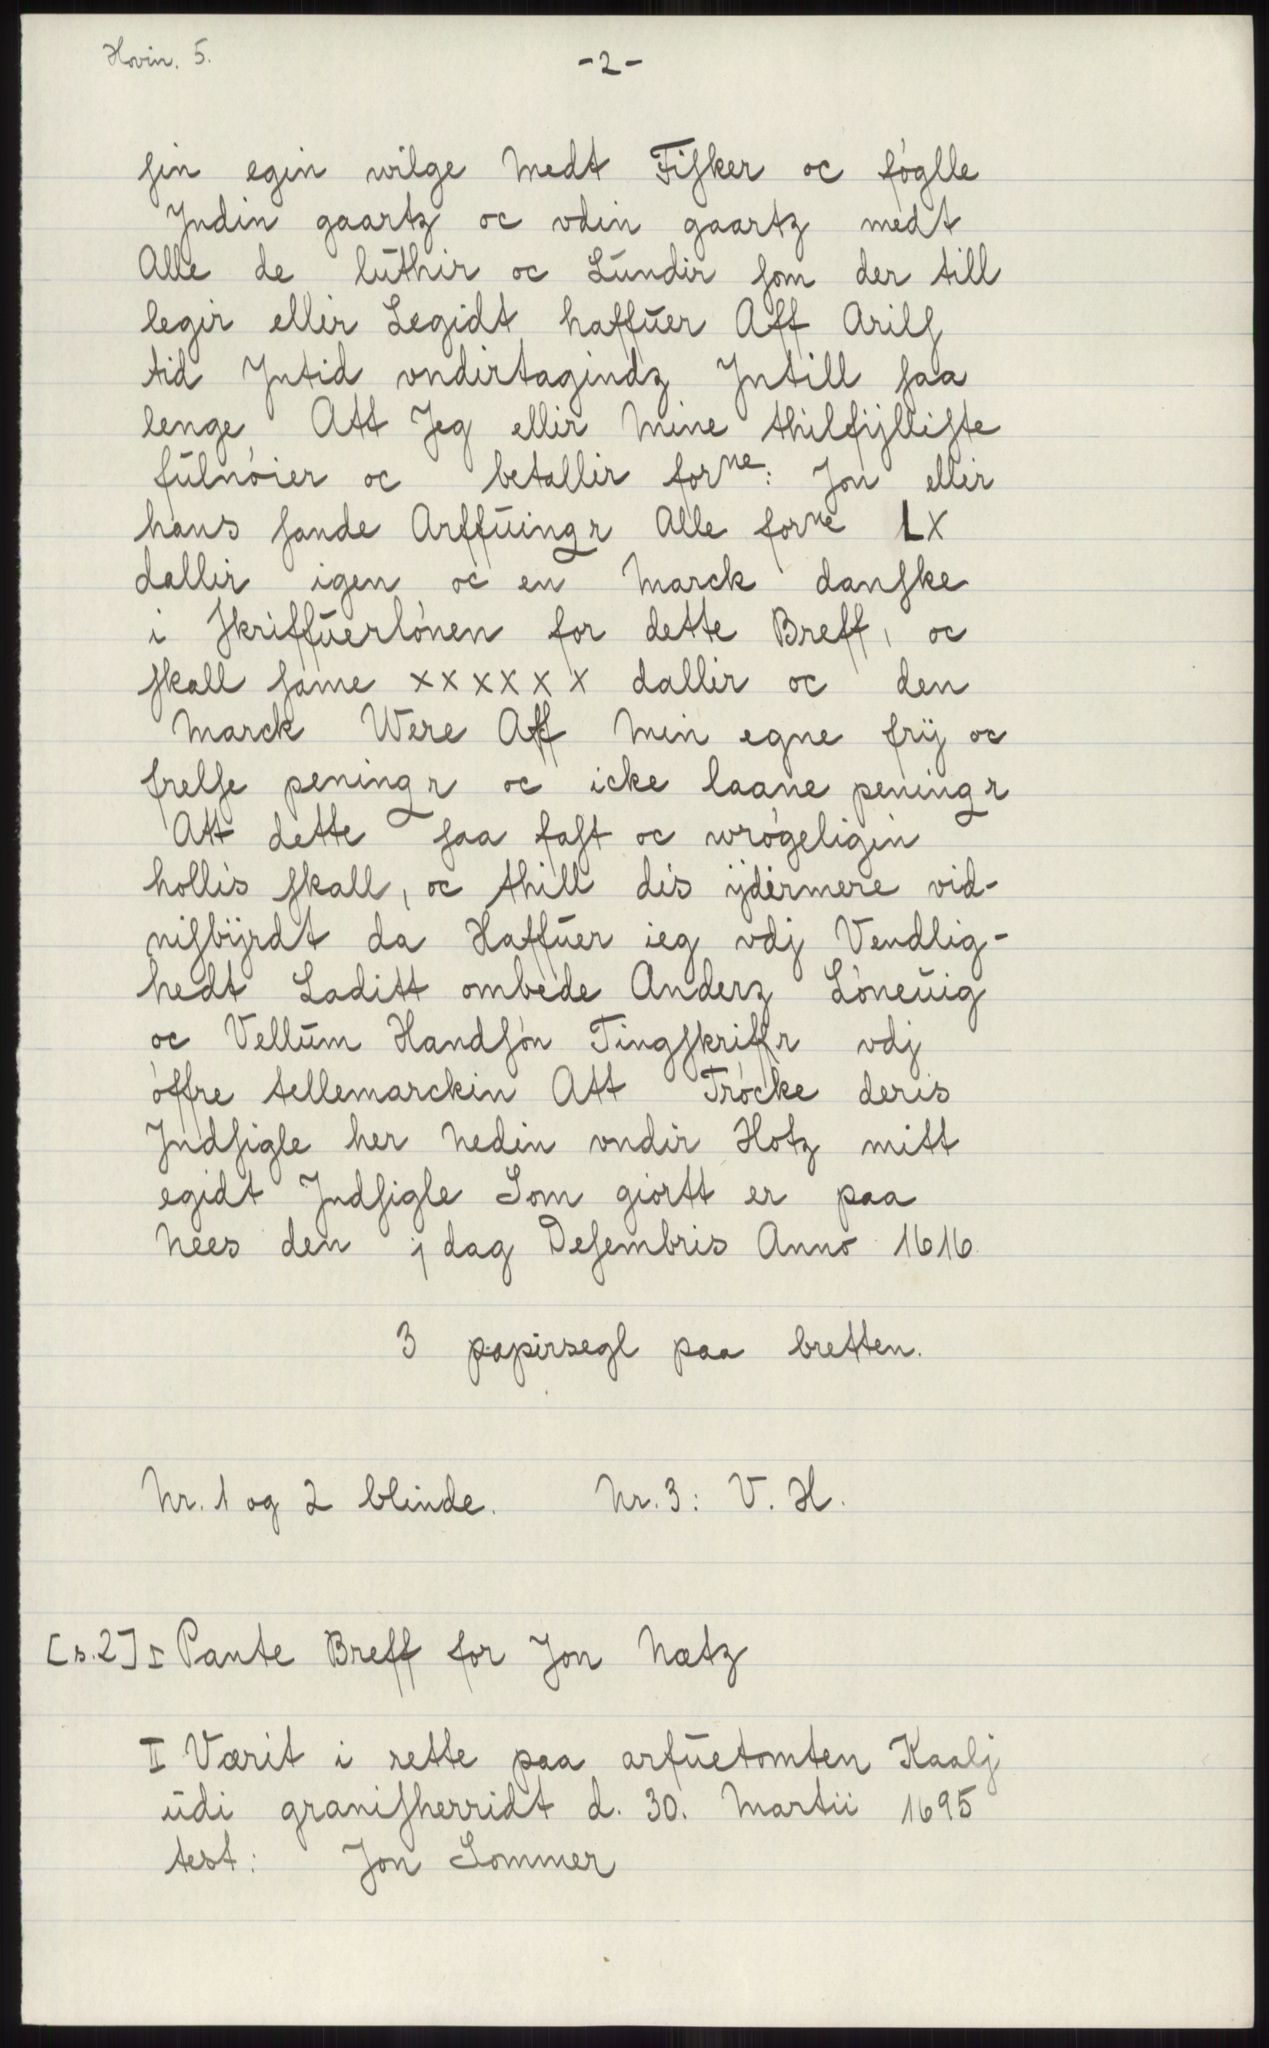 Hovin. 5.
-2-
ſin egin wilge Medt Fiſker oc föglle
Jndin gaartz oc vdin gaartz medt
Alle de lŭthir oc Lŭndir ſom der till
legir ellir Legidt haffŭer Aff Arilſ
tid Jntid vndirtagindz Jntill ſaa
lenge Att Jeg ellir Mine thilfijlliſte
fŭlnöier oc betallir forne: Jon ellir
hans ſande Arffŭingr Alle forne LX
dallir igen oc en Marck danſke
i ſkriffŭerlönen for dette Breff, oc
ſkall ſame xxxxxx dallir oc den
Marck Were Aff Min egne frij oc
frelſe peningr oc icke laane peningr
Att dette ſaa faſt oc wrögeligin
hollis ſkall, oc thill dis ijdermere vid-
niſbijrdt da Haffŭer ieg vdj Vendlig-
hedt Laditt ombede Anderz Löneŭig
oc Vellŭm Handſön Tingſkriffr vdj
öffre tellemarckin Att Tröcke deris
Jndſigle her Nedin vndir Hotz mitt
egidt Jndſigle Som giortt er paa
Nees den j dag Deſembris Anno 1616
3 papirsegl paa bretten.
Nr. 1 og 2 blinde. Nr. 3: V. H.
[s.2] I Pante Breff for Jon Nætz
II Værit i rette paa arfŭetomten Kaalj
ŭdi graniſherridt d. 30. Martii 1695
test: Jon Sommer